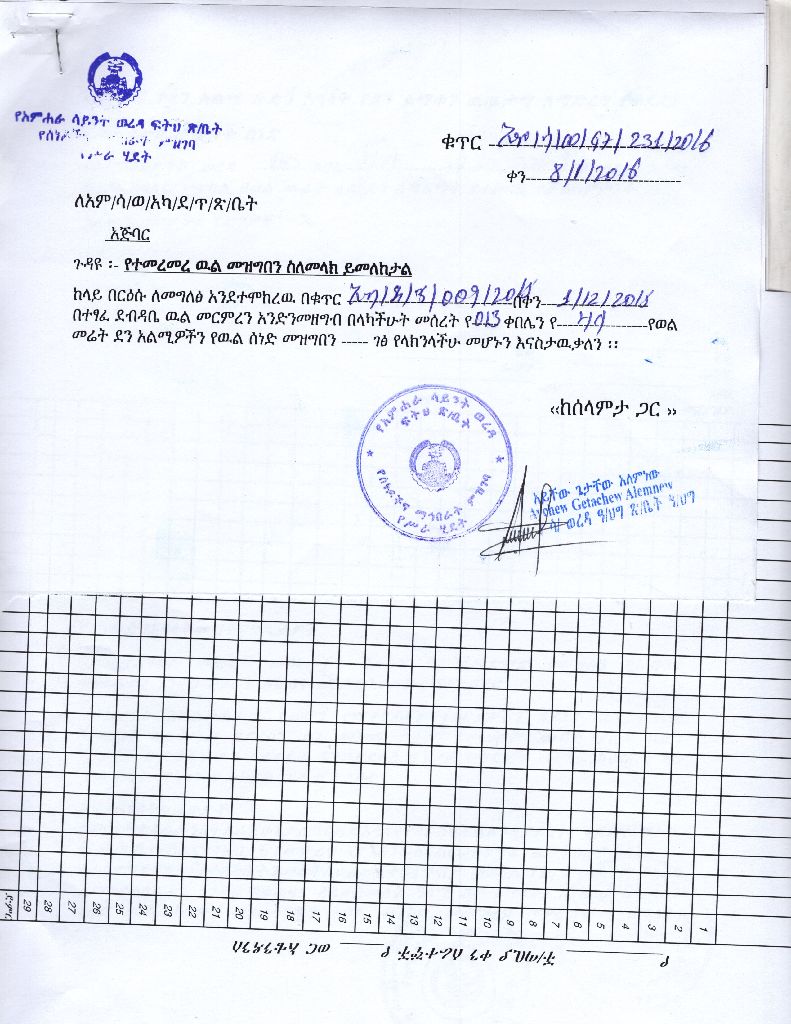 የአምሐራ ሳይንት ወረዳ ፍትህ ጽ/ቤት
ምዝገባ
የሥራ ሂደት
ቁጥር 231/2016
ቀን 8/1/2016
ለአም/ሳ/ወ/አካ/ደ/ጥ/ጽ/ቤት
አጅባር
ጉዳዩ ፡- የተመረመረ ዉል መዝግበን ስለመላክ ይመለከታል
ከላይ በርዕሱ ለመግለፅ እንደተሞከረዉ በቁጥር በቀን 1/12/2015
በተፃፈ ደብዳቤ ዉል መርምረን እንድንመዘግብ በላካችሁት መሰረት የ013 ቀበሌን የ የወል
መሬት ደን አልሚዎችን የዉል ሰነድ መዝግበን ----- ገፅ የላከንላችሁ መሆኑን እናስታዉቃለን ፡፡
‹‹ከሰላምታ ጋር ››
የአምሐራ ሳይንት ወረዳ
ፍትህ ጽ/ቤት
የሰነዶችና ማኅበራት ምዝገባ
የሥራ ሂደት
አይቸው ጌታቸው አለምነው
Aychew Getachew Alemnew
ወረዳ ዓ/ህግ ጽ/ቤት ዓ/ህግ
ድምር 29 28 27 26 25 24 23 22 21 20 19 18 17 16 15 14 13 12 11 10 9 8 7 6 5 4 3 2 1